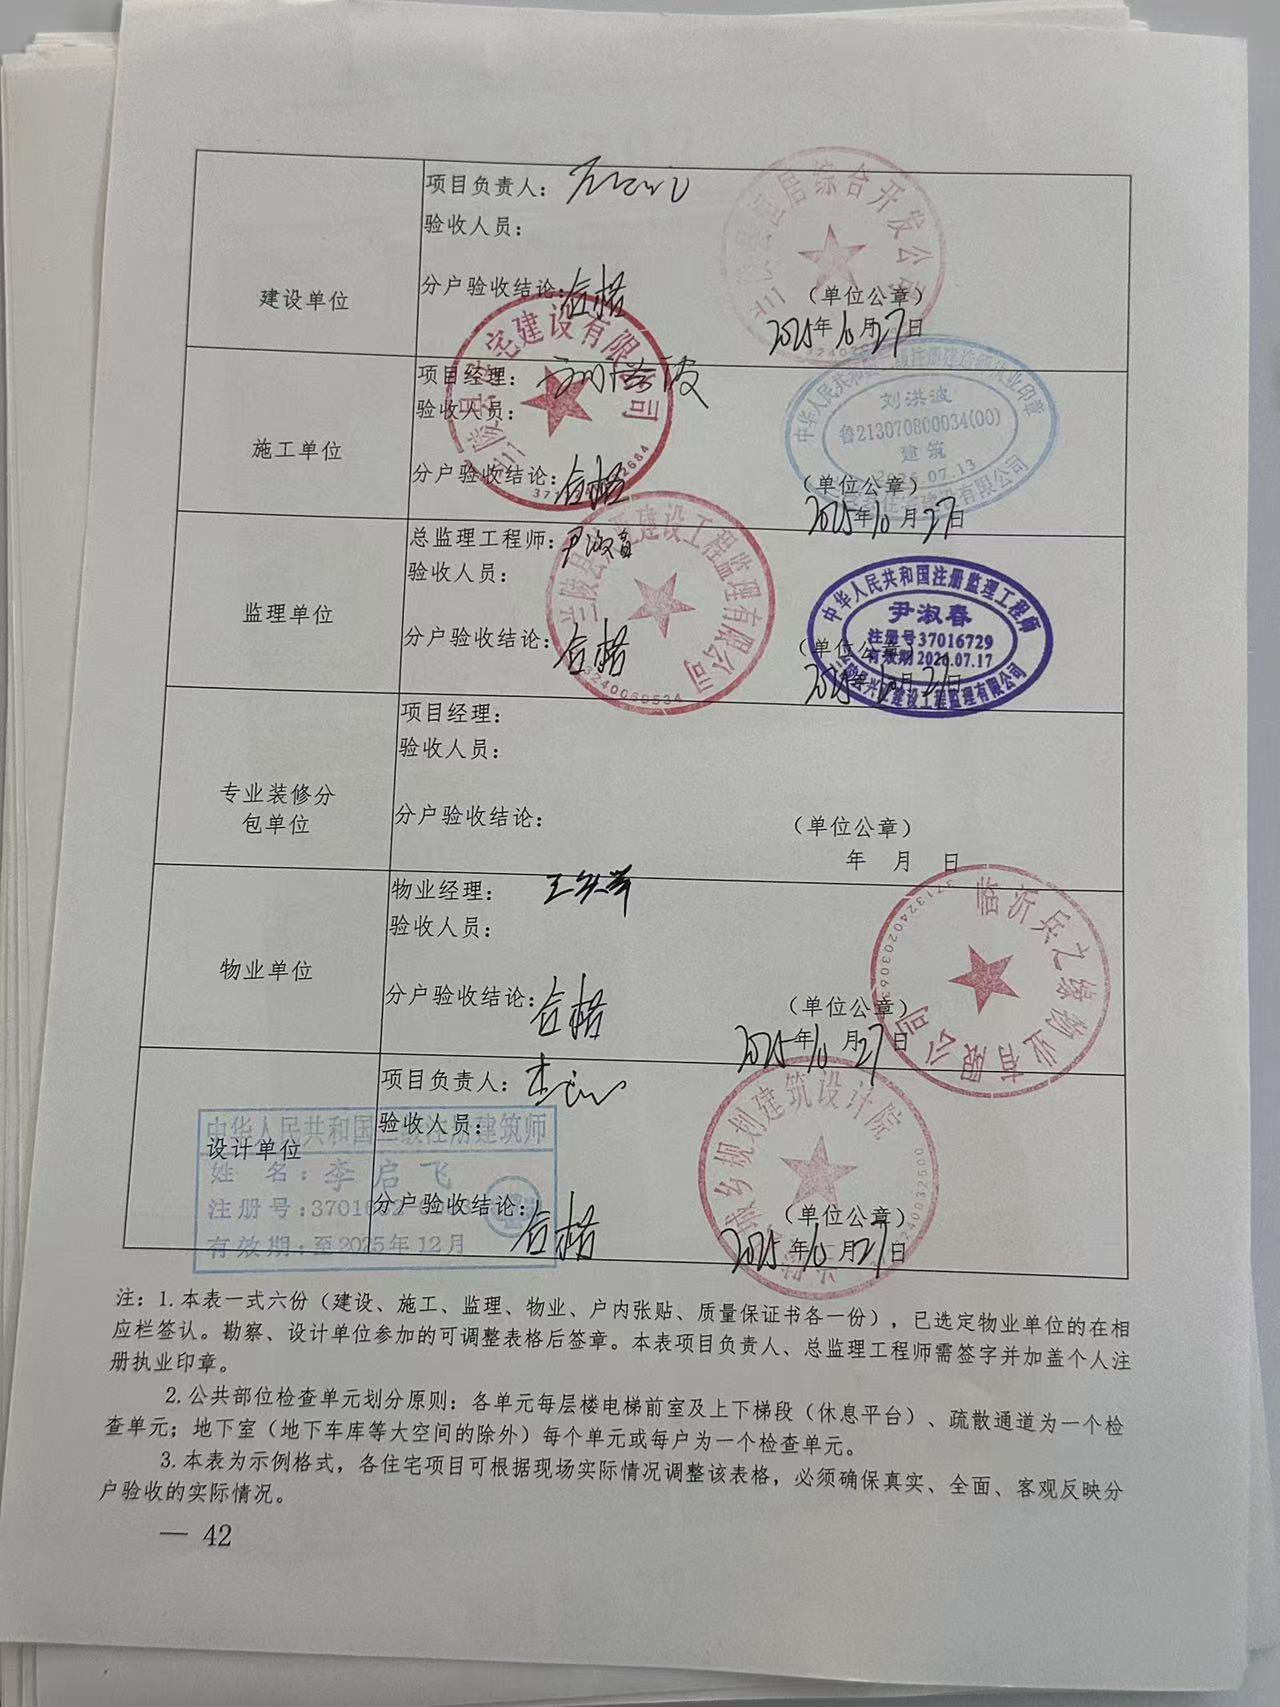 建设单位
项目负责人：
验收人员：
分户验收结论：合格
（单位公章）
2025年10月27日
居综合开发公司
施工单位
项目经理：
验收人员：
分户验收结论：合格
（单位公章）
2025年10月27日
宅建设有限
司
刘洪波
鲁213070800034(00)
建筑
2026.07.13
监理单位
总监理工程师：尹淑春
验收人员：
分户验收结论：合格
（单位公章）
2025年10月27日
建设工程监理有限公司
中华人民共和国注册监理工程师
尹淑春
注册号37016729
有效期2026.07.17
建设工程监理有限公司
专业装修分
包单位
项目经理：
验收人员：
分户验收结论：
（单位公章）
年 月 日
物业单位
物业经理：
验收人员：
分户验收结论：合格
（单位公章）
2025年10月27日
临沂兵之缘物业有限公司
设计单位
项目负责人：
验收人员：
分户验收结论：合格
（单位公章）
2025年10月27日
城乡规划建筑设计院
中华人民共和国二级注册建筑师
姓 名：李启飞
注册号：
有效期：至2025年12月
注：1.本表一式六份（建设、施工、监理、物业、户内张贴、质量保证书各一份），已选定物业单位的在相
应栏签认。勘察、设计单位参加的可调整表格后签章。本表项目负责人、总监理工程师需签字并加盖个人注
册执业印章。
2.公共部位检查单元划分原则：各单元每层楼电梯前室及上下梯段（休息平台）、疏散通道为一个检
查单元；地下室（地下车库等大空间的除外）每个单元或每户为一个检查单元。
3.本表为示例格式，各住宅项目可根据现场实际情况调整该表格，必须确保真实、全面、客观反映分
户验收的实际情况。
— 42